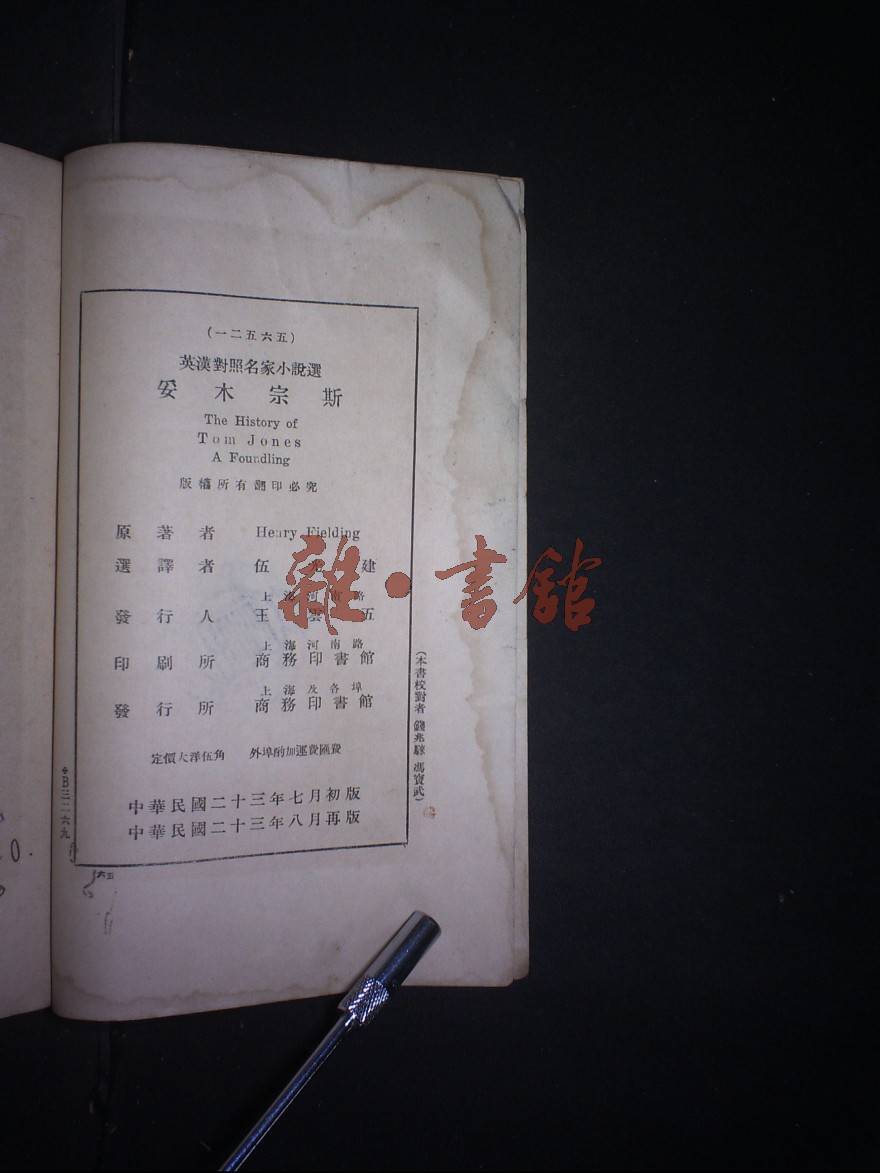 (一二五六五)
英漢對照名家小說選
妥木宗斯
The History of
Tom Jones
A Foundling
版權所有翻印必究
原著者 Henry Fielding
選譯者 伍光建
上海河南路
發行人 王雲五
上海河南路
印刷所 商務印書館
上海及各埠
發行所 商務印書館
定價大洋伍角 外埠酌加運費匯費
中華民國二十三年七月初版
中華民國二十三年八月再版
(本書校對者 錢兆騄 馮寶武)
B三二六九
六五
雜·書館